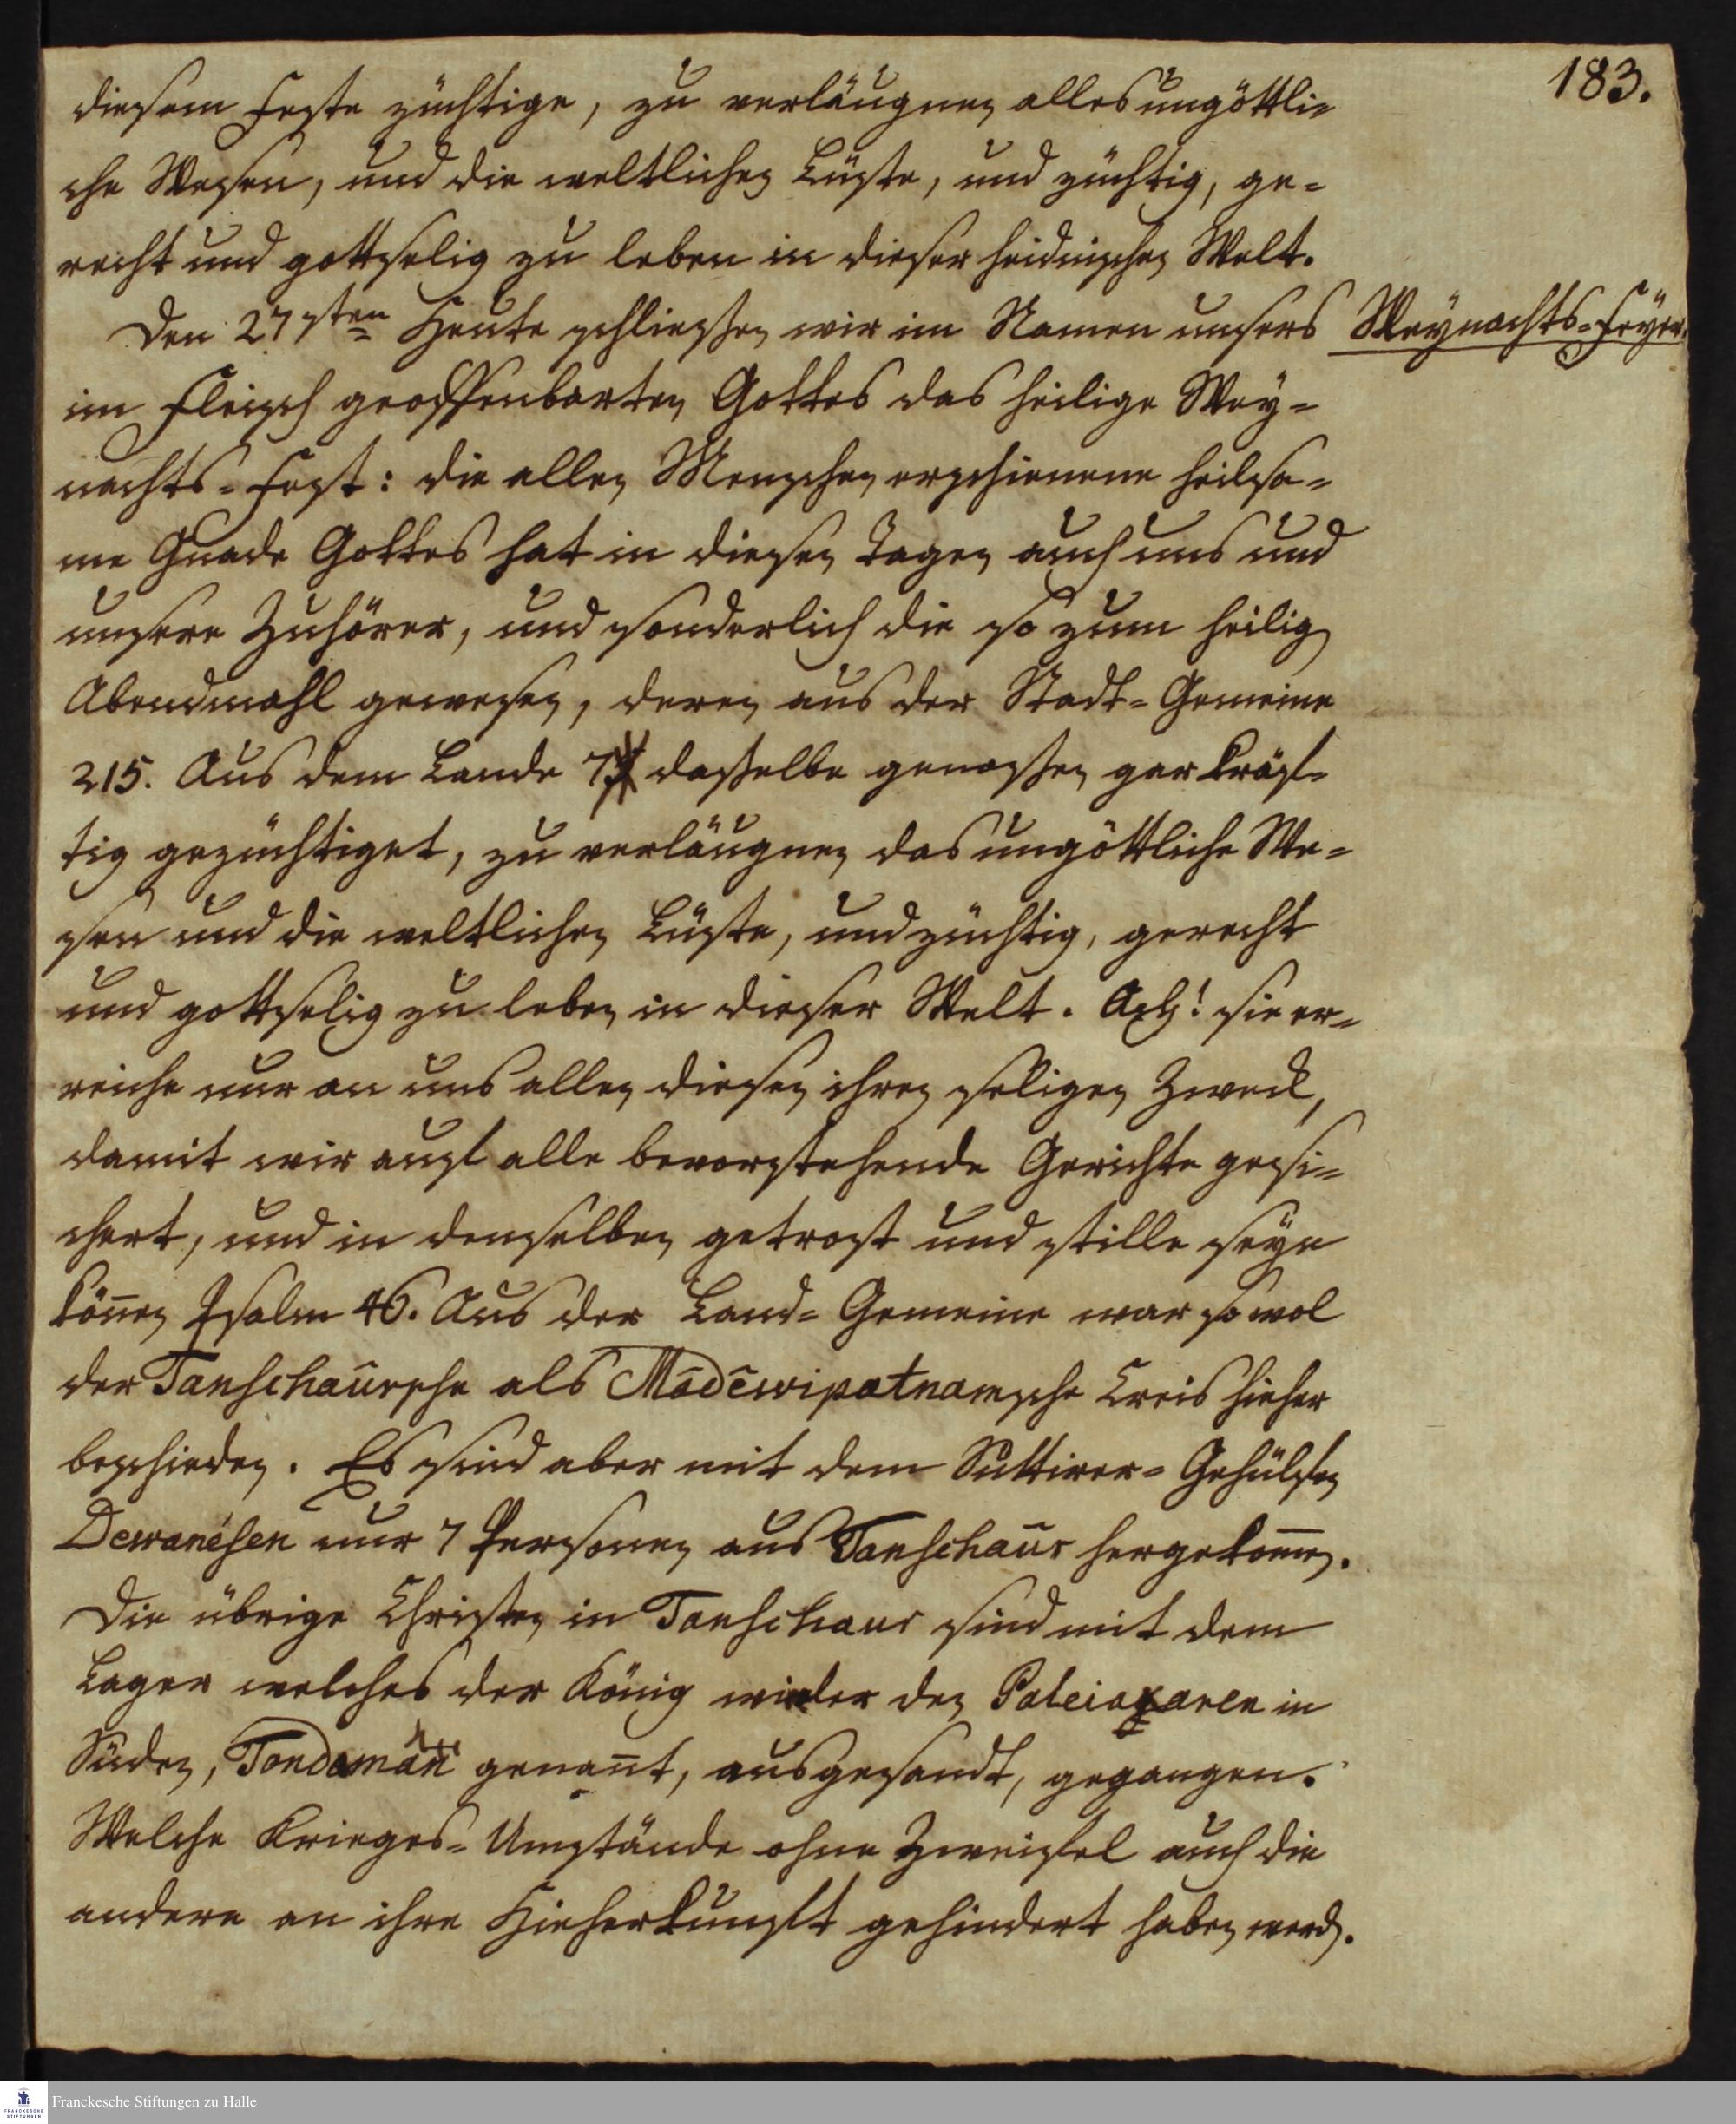 183.
diesem Feste züchtige, zu verläugnen alles ungöttli-
che Wesen, und die weltlichen Lüste, und züchtig, ge-
recht und gottselig zu leben in dieser heidnischen Welt.
Den 27sten Heute schliessen wir im Namen unsers
Weynachts-Feyer.
im Fleisch geoffenbarten Gottes das heilige Wey-
nachts-Fest: die allen Menschen erschienene heilsa-
me Gnade Gottes hat in diesen Tagen auch uns und
unsere Zuhörer, und sonderlich die so zum heilig
Abendmahl gewesen, deren aus der Stadt-Gemeine
215. Aus dem Lande 7 dasselbe genossen gar kräf-
tig gezüchtiget, zu verläugnen das ungöttliche We-
sen und die weltlichen Lüste, und züchtig, gerecht
und gottselig zu leben in dieser Welt. Ach! sie er-
reiche nur an uns allen diesen ihren seligen Zweck,
damit wir auf alle bevorstehende Gerichte gesi-
chert, und in denselben getrost und stille seyn
kön̄en Psalm 46. Aus der Land-Gemeine war so wol
der Tanschaursche als Mādēwipatnamsche Creis hieher
beschieden. Es sind aber mit dem Suttirer-Gehülfen
Dewanésen nur 7 Personen aus Tanschaur hergekom̄en.
Die übrige Christen in Tanschaur sind mit dem
Lager welches der König wieder den Paleiagaren in
Süden, Tondamān genan̄t, ausgesandt, gegangen.
Welche Krieges-Umstände ohne Zweifel auch die
andern an ihre Hieherkunft gehindert haben werd.
Franckesche Stiftungen zu Halle
FRANCKESCHE
STIFTUNGEN